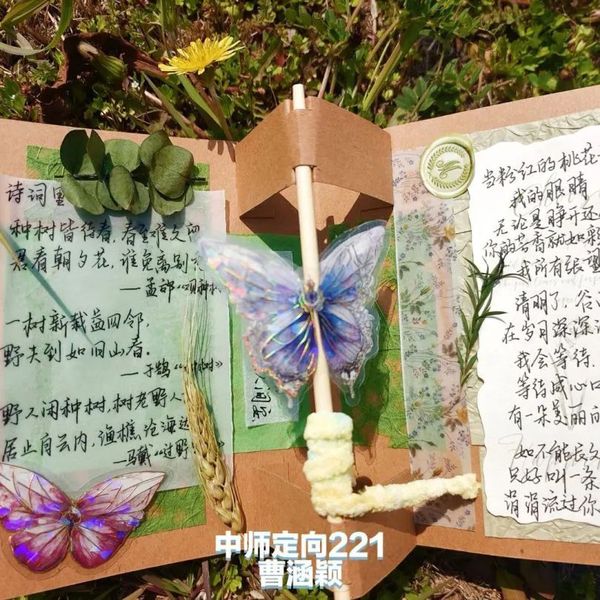 诗词里
种树皆待春，春至难久留
君看朝夕花，谁免离别
—孟郊
一树新栽益四邻，
野夫到如旧山看。
—于鹄《种树》
野人闲种树，树老野人
居止白云内，渔樵沧海
—马戴《过野
当粉红的桃花
我的眼睛
无论是睁开还
你的芳香都如
我所有
清明了，谷
在岁月深深
我会等待
等待成心口
有一朵美丽的
如不能长久
只好叫一条
涓涓流过你
中师定向221
曹涵颖